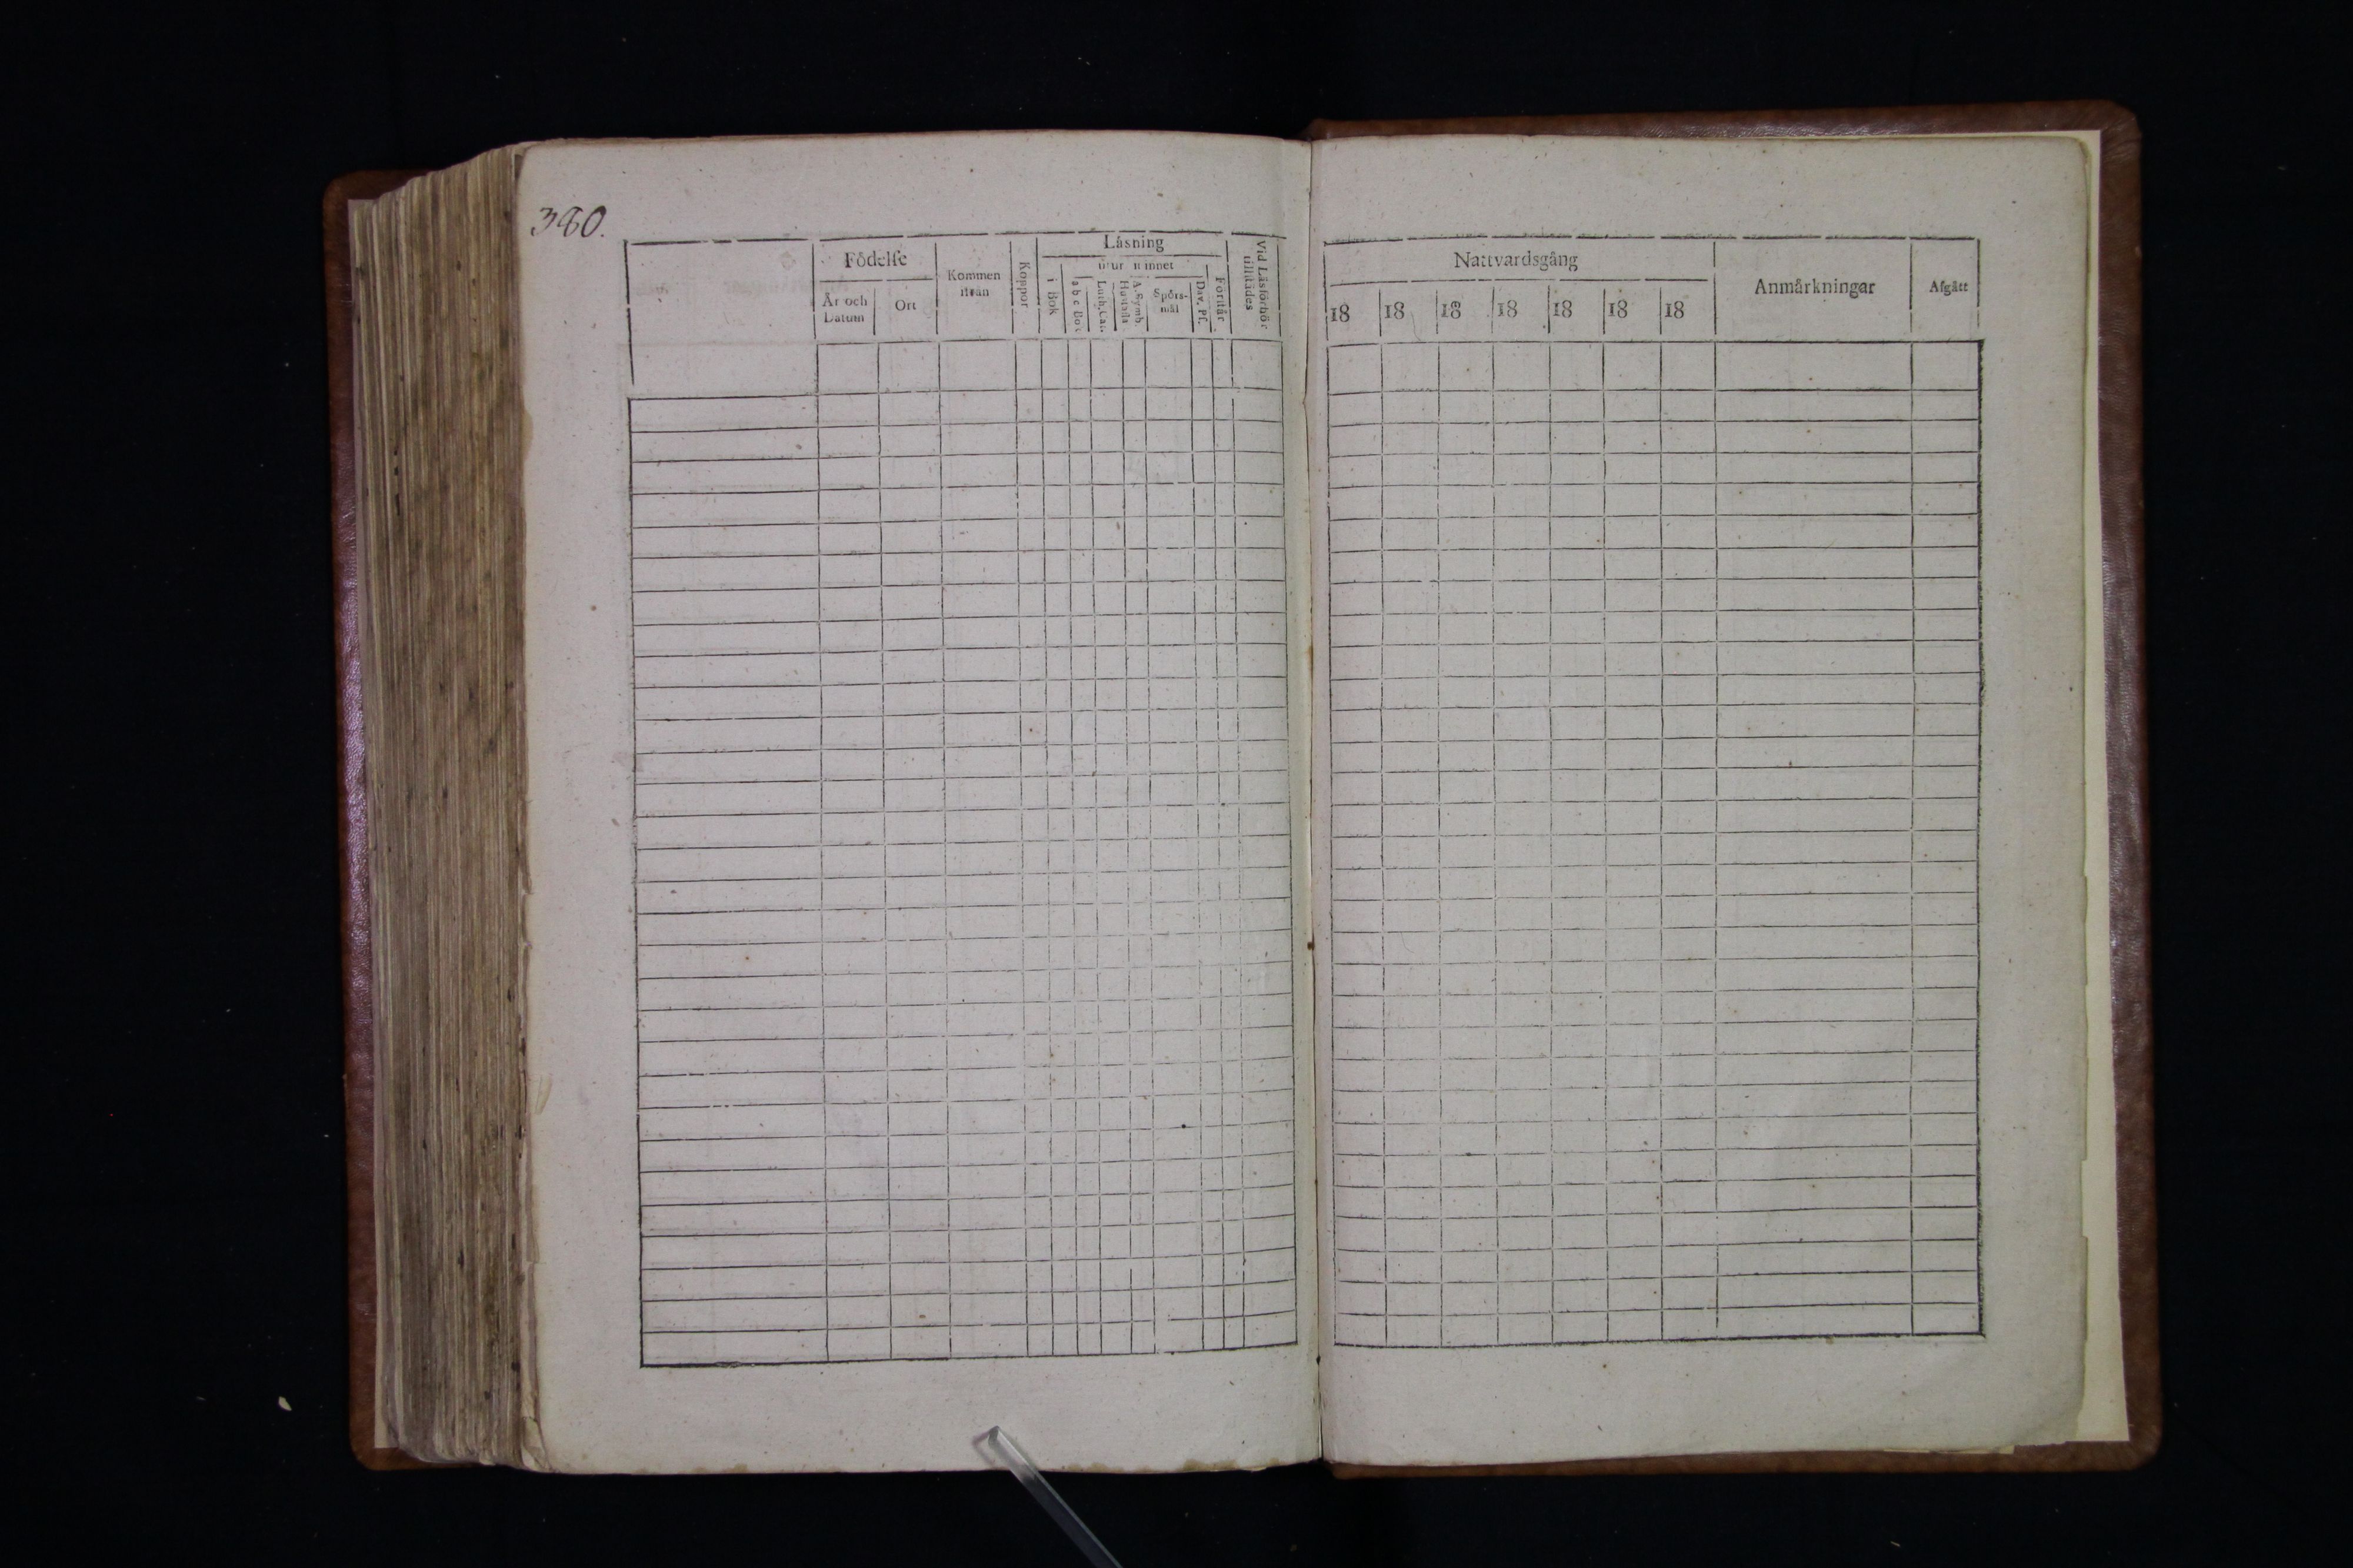 380.
Födelse
År och
Datum
Ort
Kommen
ifrån
Koppor
Läsning
utur minnet
i Bok
a b c Bok
Luth. Cat.
A. Symb.
Hustafla
Spörs-
mål
Dav. Ps.
Förstår
Vid Läsförhör
tillstädes
Nattvardsgång
18 18 18 18 18 18 18
Anmårkningar
Afgått